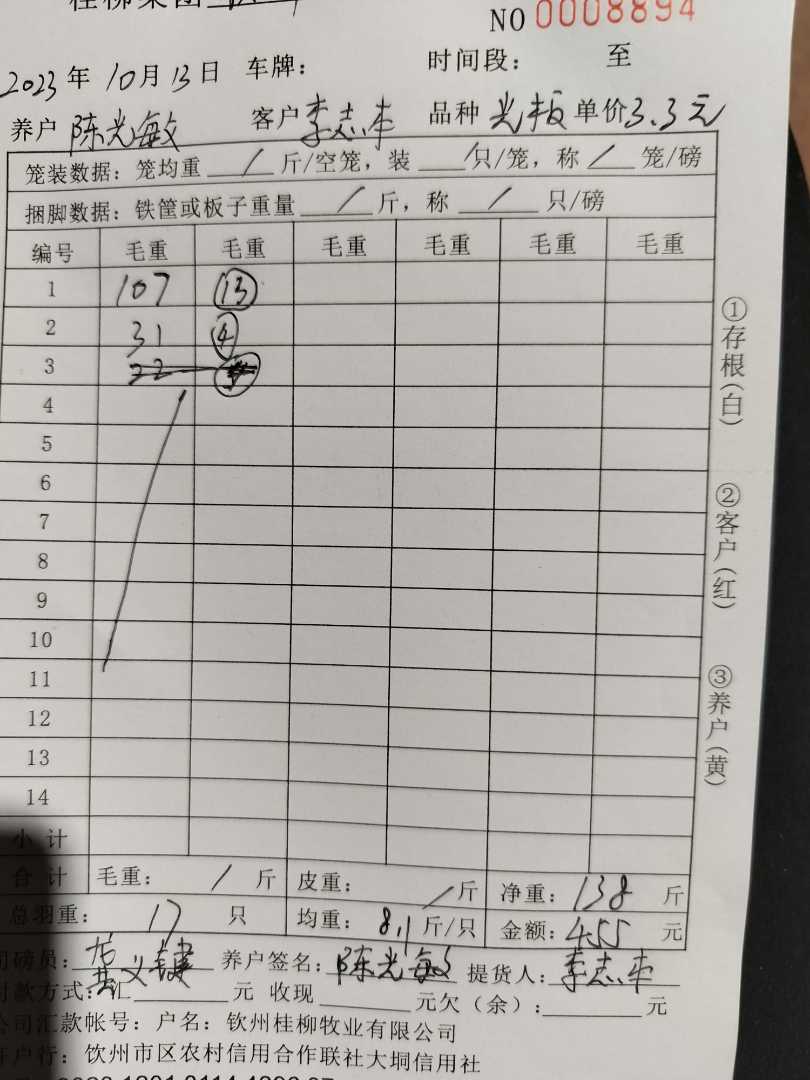 桂柳集团
NO 0008894
2023年10月13日 车牌： 时间段： 至
养户 陈光敏 客户 李志丰 品种 光板 单价3.3元
笼装数据：笼均重 / 斤/空笼，装 /只/笼，称 / 笼/磅
捆脚数据：铁筐或板子重量 / 斤，称 / 只/磅
编号 毛重 毛重 毛重 毛重 毛重 毛重
1 107 13
2 31 4
3 22
4
5
6
7
8
9
10
11
12
13
14
小计
合计 毛重： / 斤 皮重： / 斤 净重：138 斤
总羽重： 17 只 均重： 8.1 斤/只 金额：455 元
司磅员： 养户签名：陈光敏 提货人：李志丰
付款方式：汇 元 收现 元欠（余）： 元
公司汇款帐号：户名：钦州桂柳牧业有限公司
开户行：钦州市区农村信用合作联社大垌信用社
①存根（白）
②客户（红）
③养户（黄）